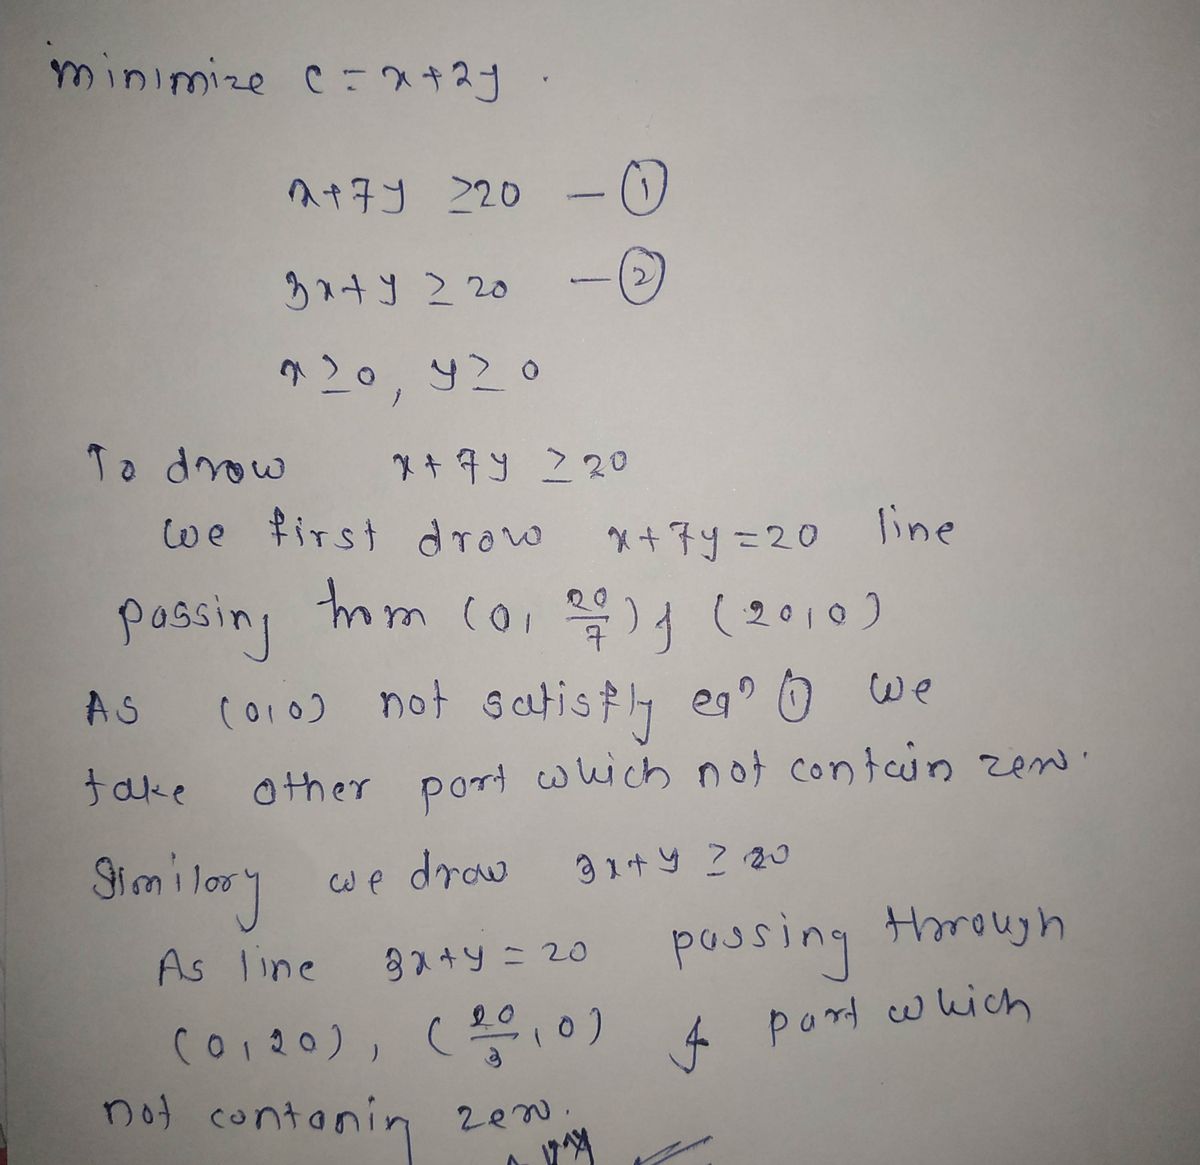 minimize c = x+2y .
x+7y ≥20 — ①
3x+y ≥ 20 — ②
x≥0, y≥0
To drow x+7y ≥20
we first drow x+7y=20 line
passing from (0, 20/7) & (20,0)
As (0,0) not satisfly eqn ① we
take other part which not contain zero.
Similary we draw 3x+y ≥ 20
As line 3x+y = 20 passing through
(0,20), (20/3, 0) & part which
not contanin zero.